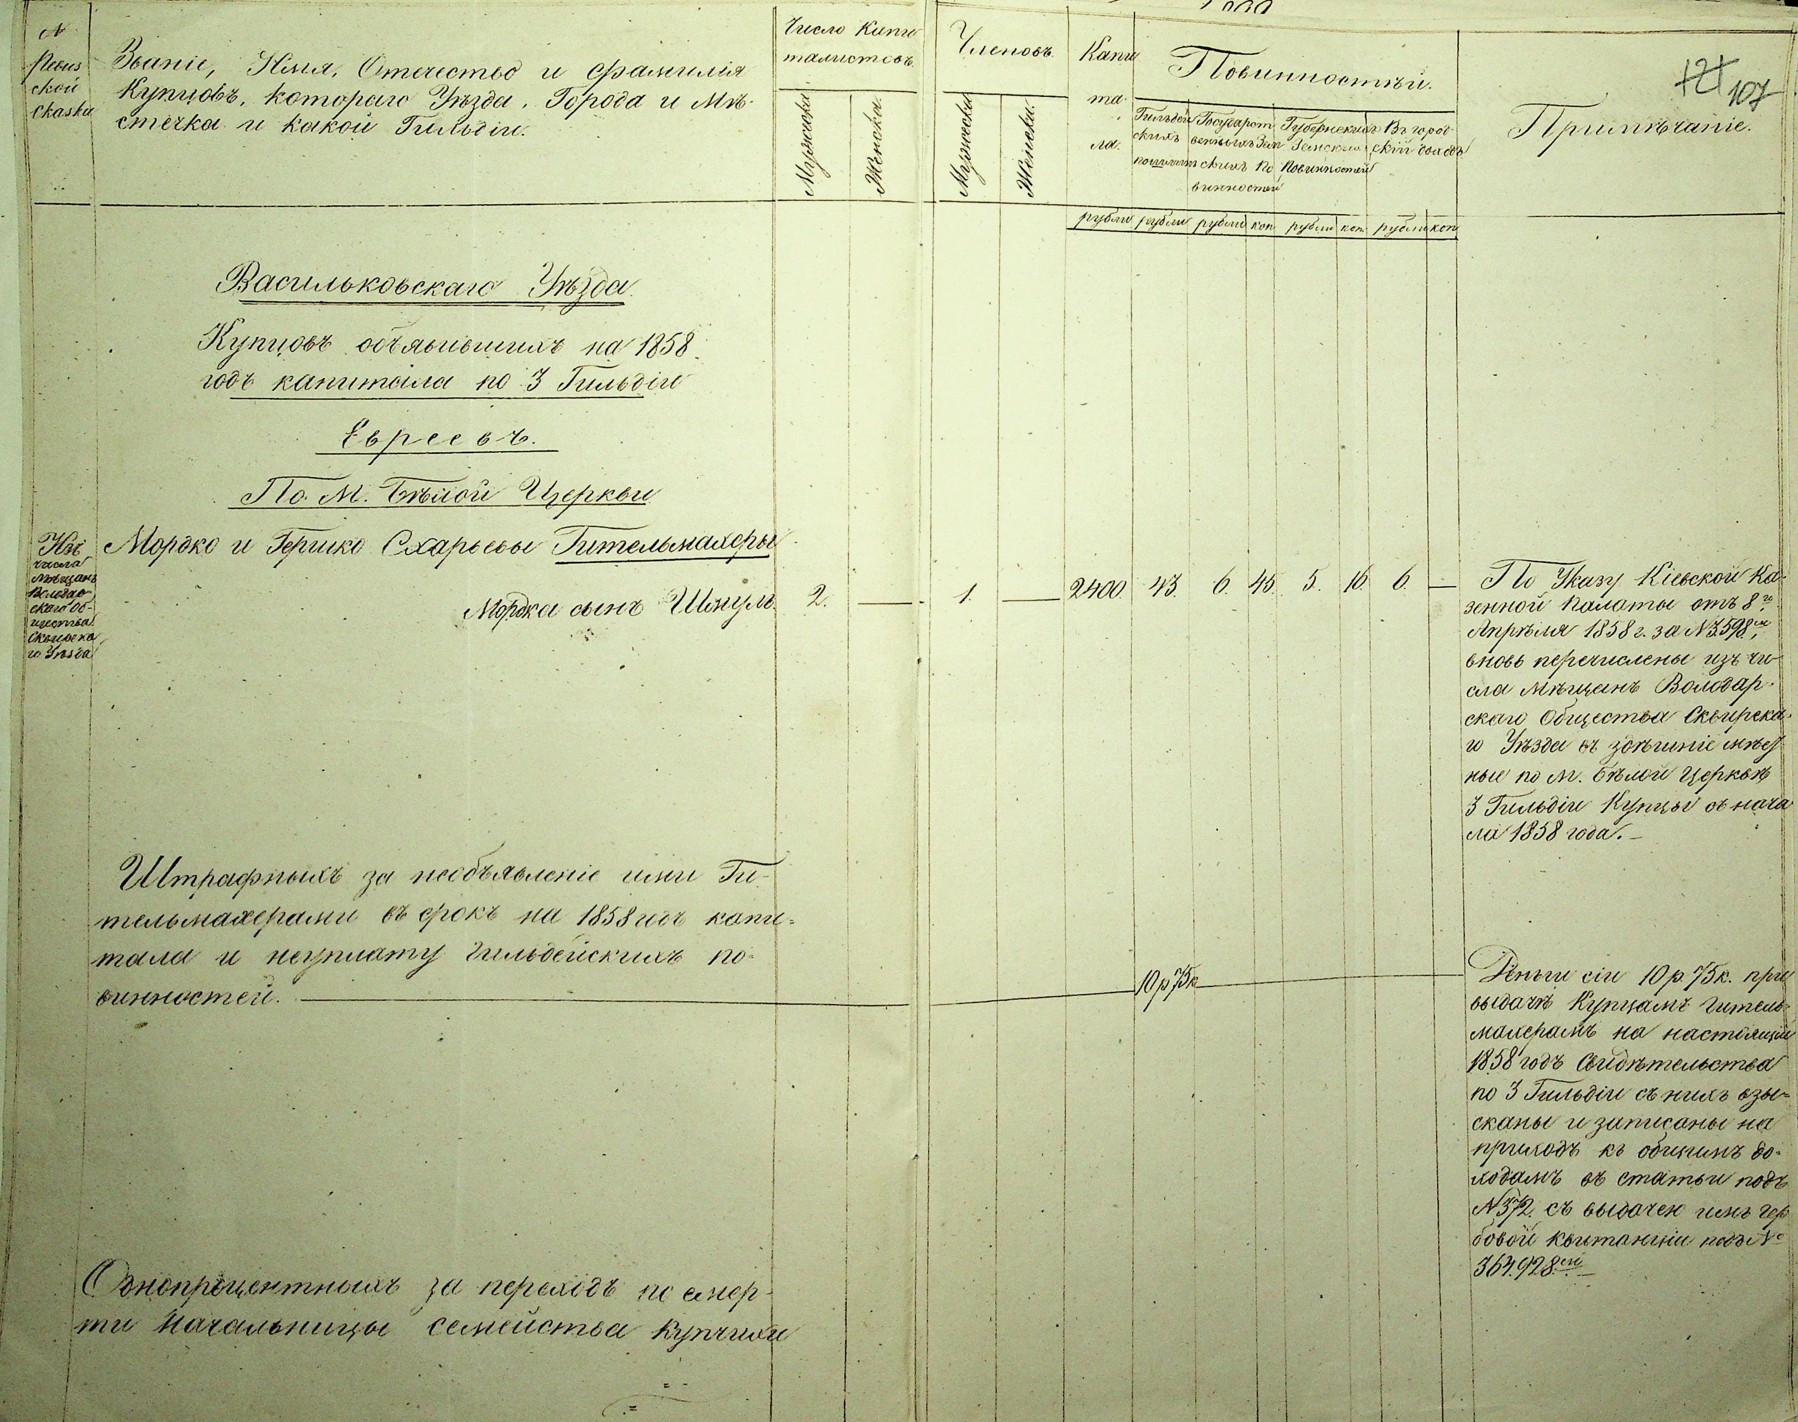 121 107
№
Ревиз
ской
сказки
Званіе, Имя, Отечество и фамилія
Купцовъ, котораго Уѣзда, Города и Мѣ-
стечка и какой Гильдіи.
Число Капи
талистовъ
Мужеска
Женска.
Членовъ.
Мужеска
Женска.
Капи
та-
ла.
Повинностѣй.
Гильдей
скихъ
Государст
венныхъ Зем
скихъ По
винностей
Губернскихъ
Земскихъ
Повинностей
Въ город
скій доходъ
Примѣчаніе.
рубли рубли рубли коп рубли коп. рубли коп
Васильковскаго Уѣзда.
Купцовъ объявившихъ на 1858
годъ капитала по 3 Гильдіи
Евреевъ.
По М. Бѣлой Церкви
Изъ
числа
мѣщанъ
Володар
скаго Об-
щества
Сквирска
го Уѣзда
Мордко и Гершко Схарьевы Гительмахеры
Мордка сынъ Шмуль. 2. — 1. — 2400. 43. 6. 45. 5. 16. 6. —
По Указу Кіевской Ка-
зенной Палаты отъ 8го
Апрѣля 1858 г. за № 3598м,
вновь перечислены изъ чи-
сла Мѣщанъ Володар-
скаго Общества Сквирска-
го Уѣзда въ здѣшніе
ные по М. Бѣлой Церквѣ
3 Гильдіи Купцы съ нача
ла 1858 года. —
Штрафныхъ за необъявленіе ими Ги-
тельмахерами въ срокъ на 1858 годъ капи-
тала и неуплату Гильдейскихъ по-
винностей. — 10 р 75 к —
Деньги сіи 10 р. 75 к. при
выдачѣ Купцамъ Гитель-
махерамъ на настоящій
1858 годъ Свидѣтельства
по 3 Гильдіи съ нихъ взы-
сканы и записаны на
приходъ къ общимъ до-
ходамъ въ статьи подъ
№ 372. съ выдачею имъ гер
бовой квитанціи подъ №
364.928.мъ —
Однопроцентныхъ за переходъ по смер-
ти Начальницы семейства Купчихи